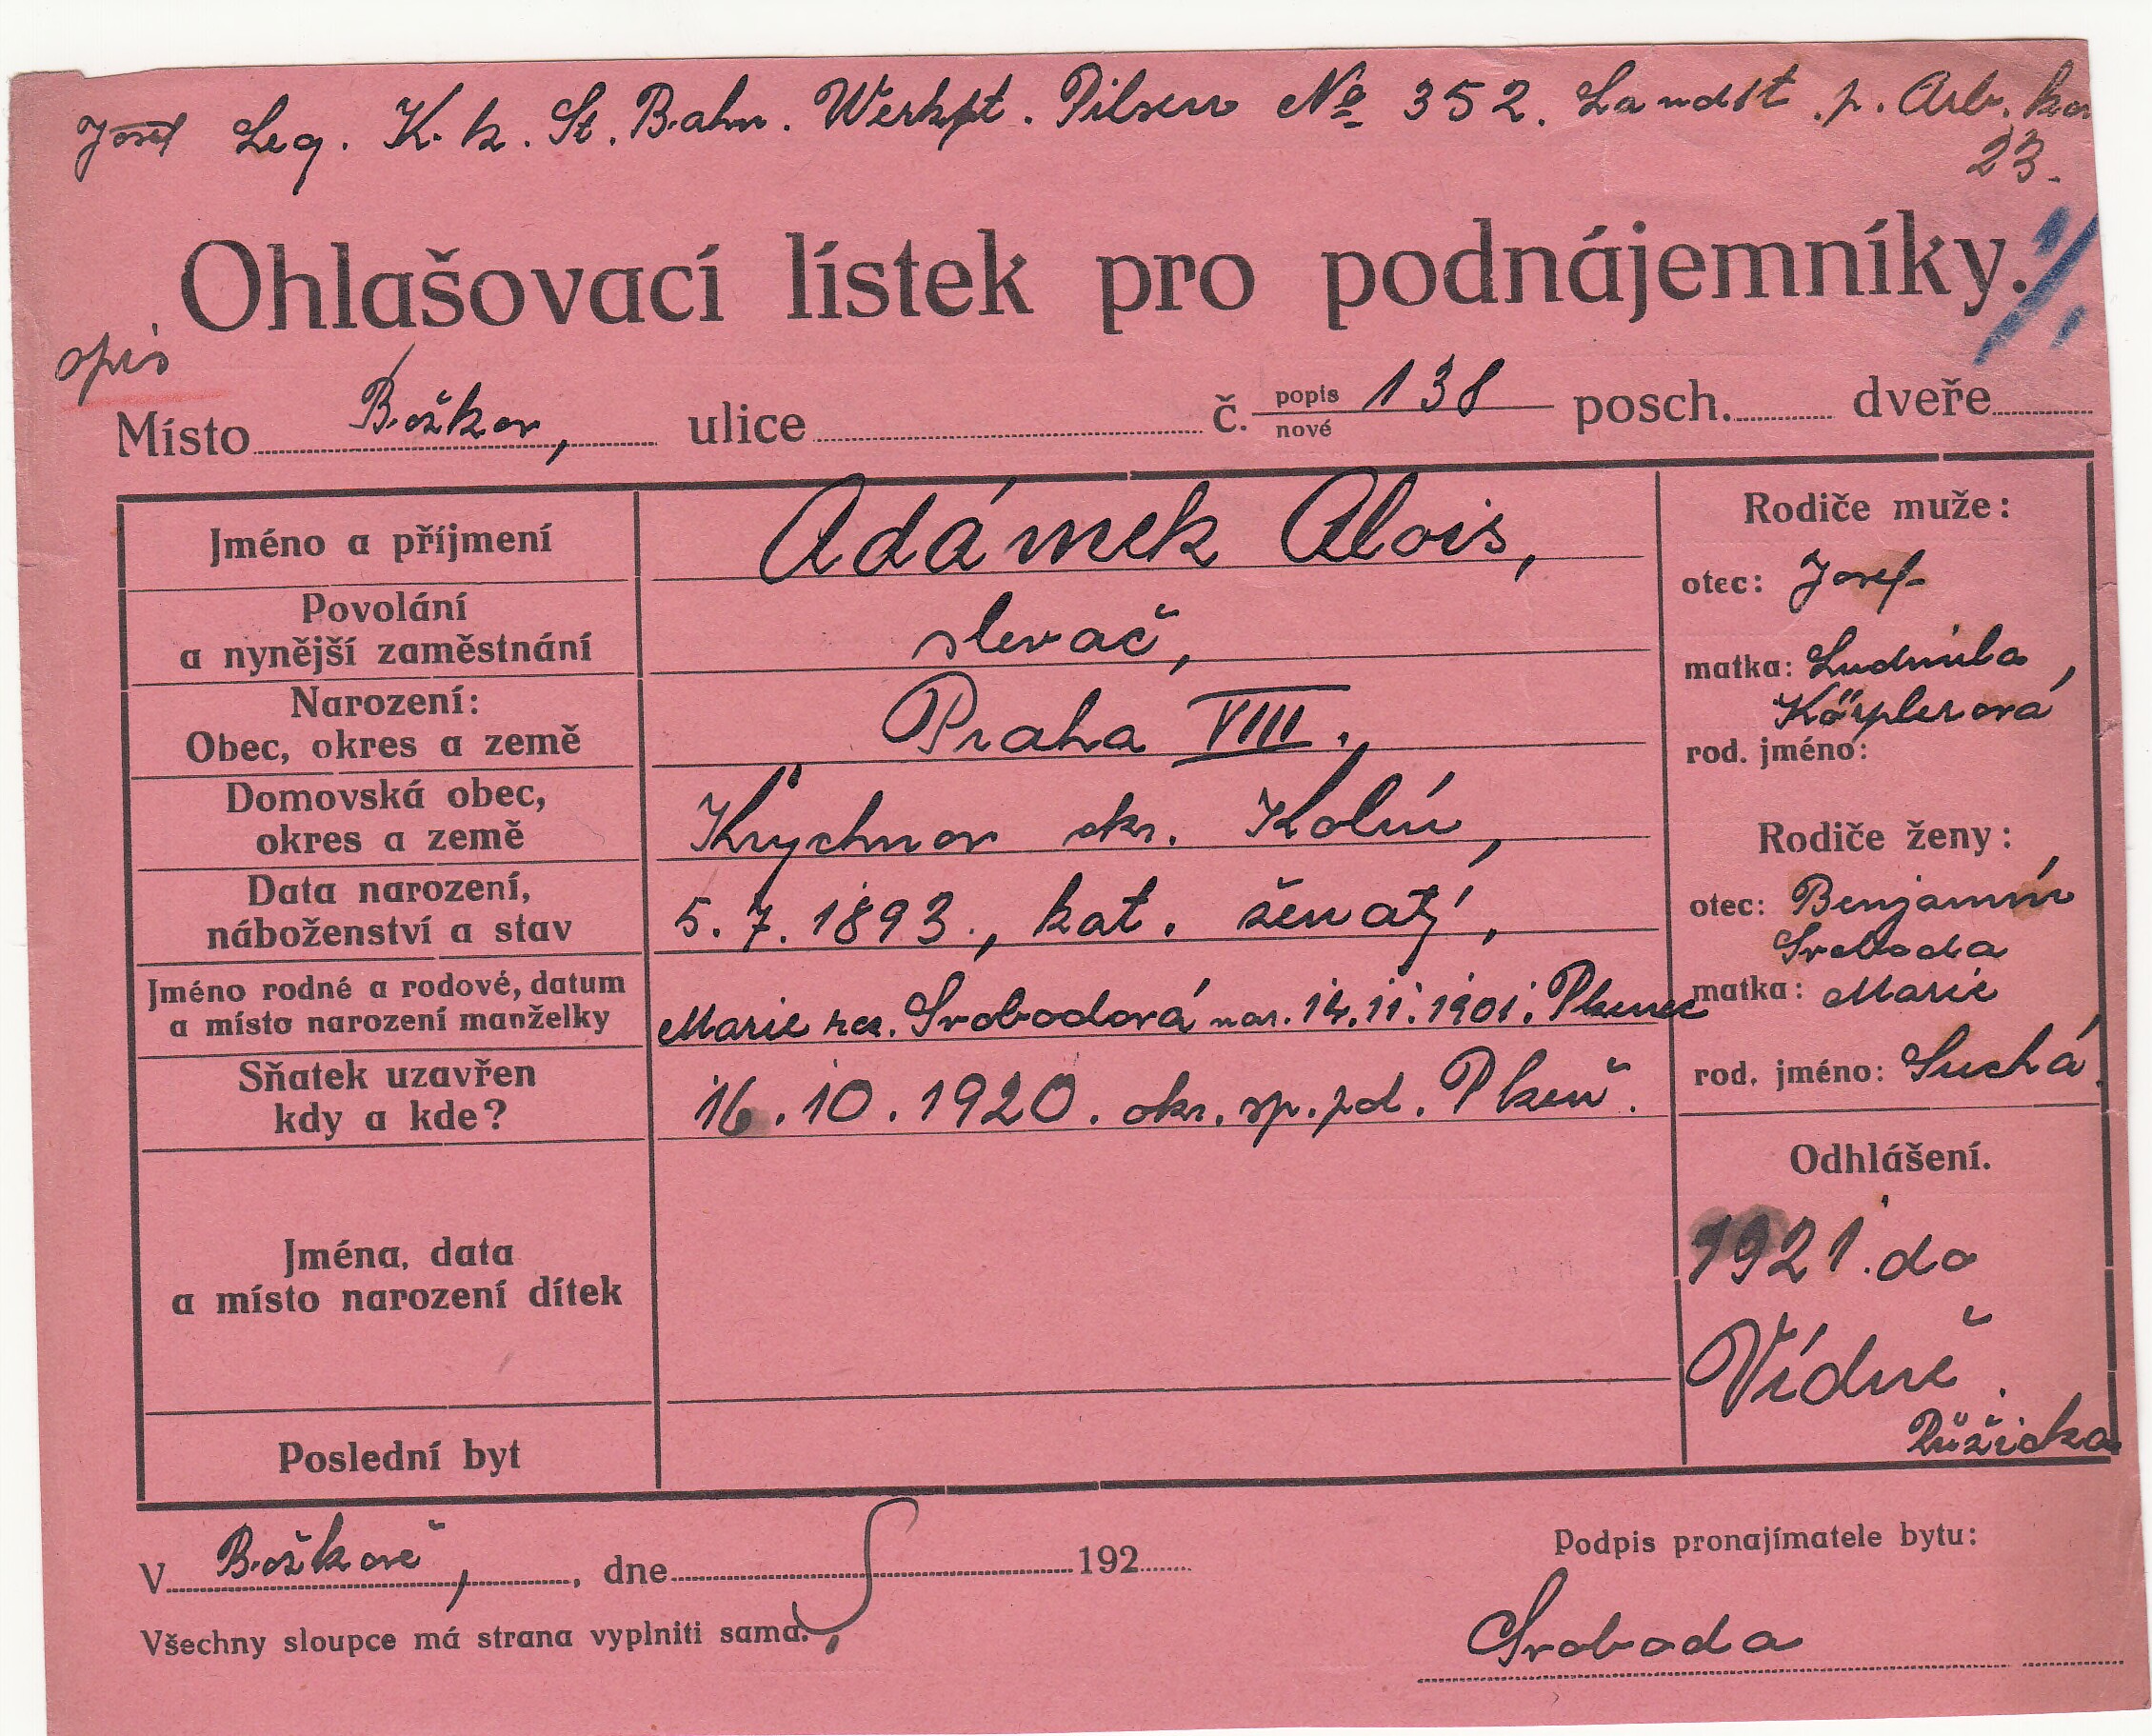 Josef Leg. K. k. St. Bahn. Werkst. Pilsen No 352. Landst. p. Arb.
23.
Ohlašovací lístek pro podnájemníky.
opis
Místo Božkov, ulice č. popis 138 posch. dveře
nové
Jméno a příjmení Adámek Alois,
Povolání
a nynější zaměstnání slevač,
Narození:
Obec, okres a země Praha VIII.
Domovská obec,
okres a země Krychnov okr. Kolín,
Data narození,
náboženství a stav 5. 7. 1893., kat. ženatý,
Jméno rodné a rodové, datum
a místo narození manželky Marie roz. Svobodová nar. 14. 11. 1901. Plzenec
Sňatek uzavřen
kdy a kde? 16. 10. 1920. okr. sp. pol. Plzeň.
Jména, data
a místo narození dítek
Poslední byt
Rodiče muže:
otec: Josef
matka: Ludmila,
Körplerová
rod. jméno:
Rodiče ženy:
otec: Benjamín
Svoboda
matka: Marie
rod. jméno: Suchá.
Odhlášení.
1921. do
Vídně.
Růžička
V Božkově, dne 192
Podpis pronajímatele bytu:
Všechny sloupce má strana vyplniti sama.
Svoboda